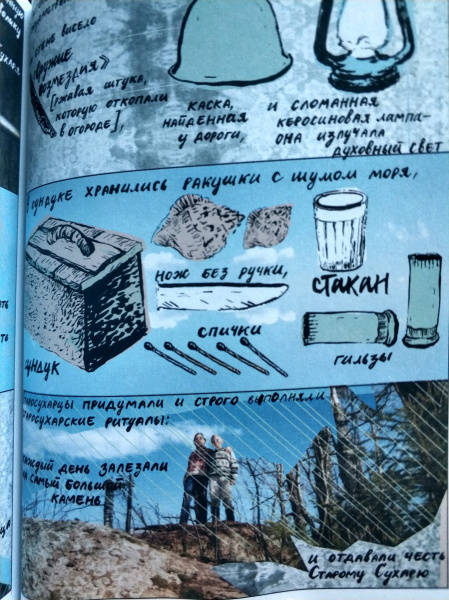 висело
[ржавая штука,
которую откопали
в огороде],
каска,
найденная
у дороги,
и сломанная
керосиновая лампа—
она излучала
духовный свет
сундуке хранились ракушки с шумом моря,
нож без ручки,
стакан
спички
гильзы
сундук
старосухарцы придумали и строго выполняли
старосухарские ритуалы:
каждый день залезали
на самый большой
камень
и отдавали честь
Старому Сухарю